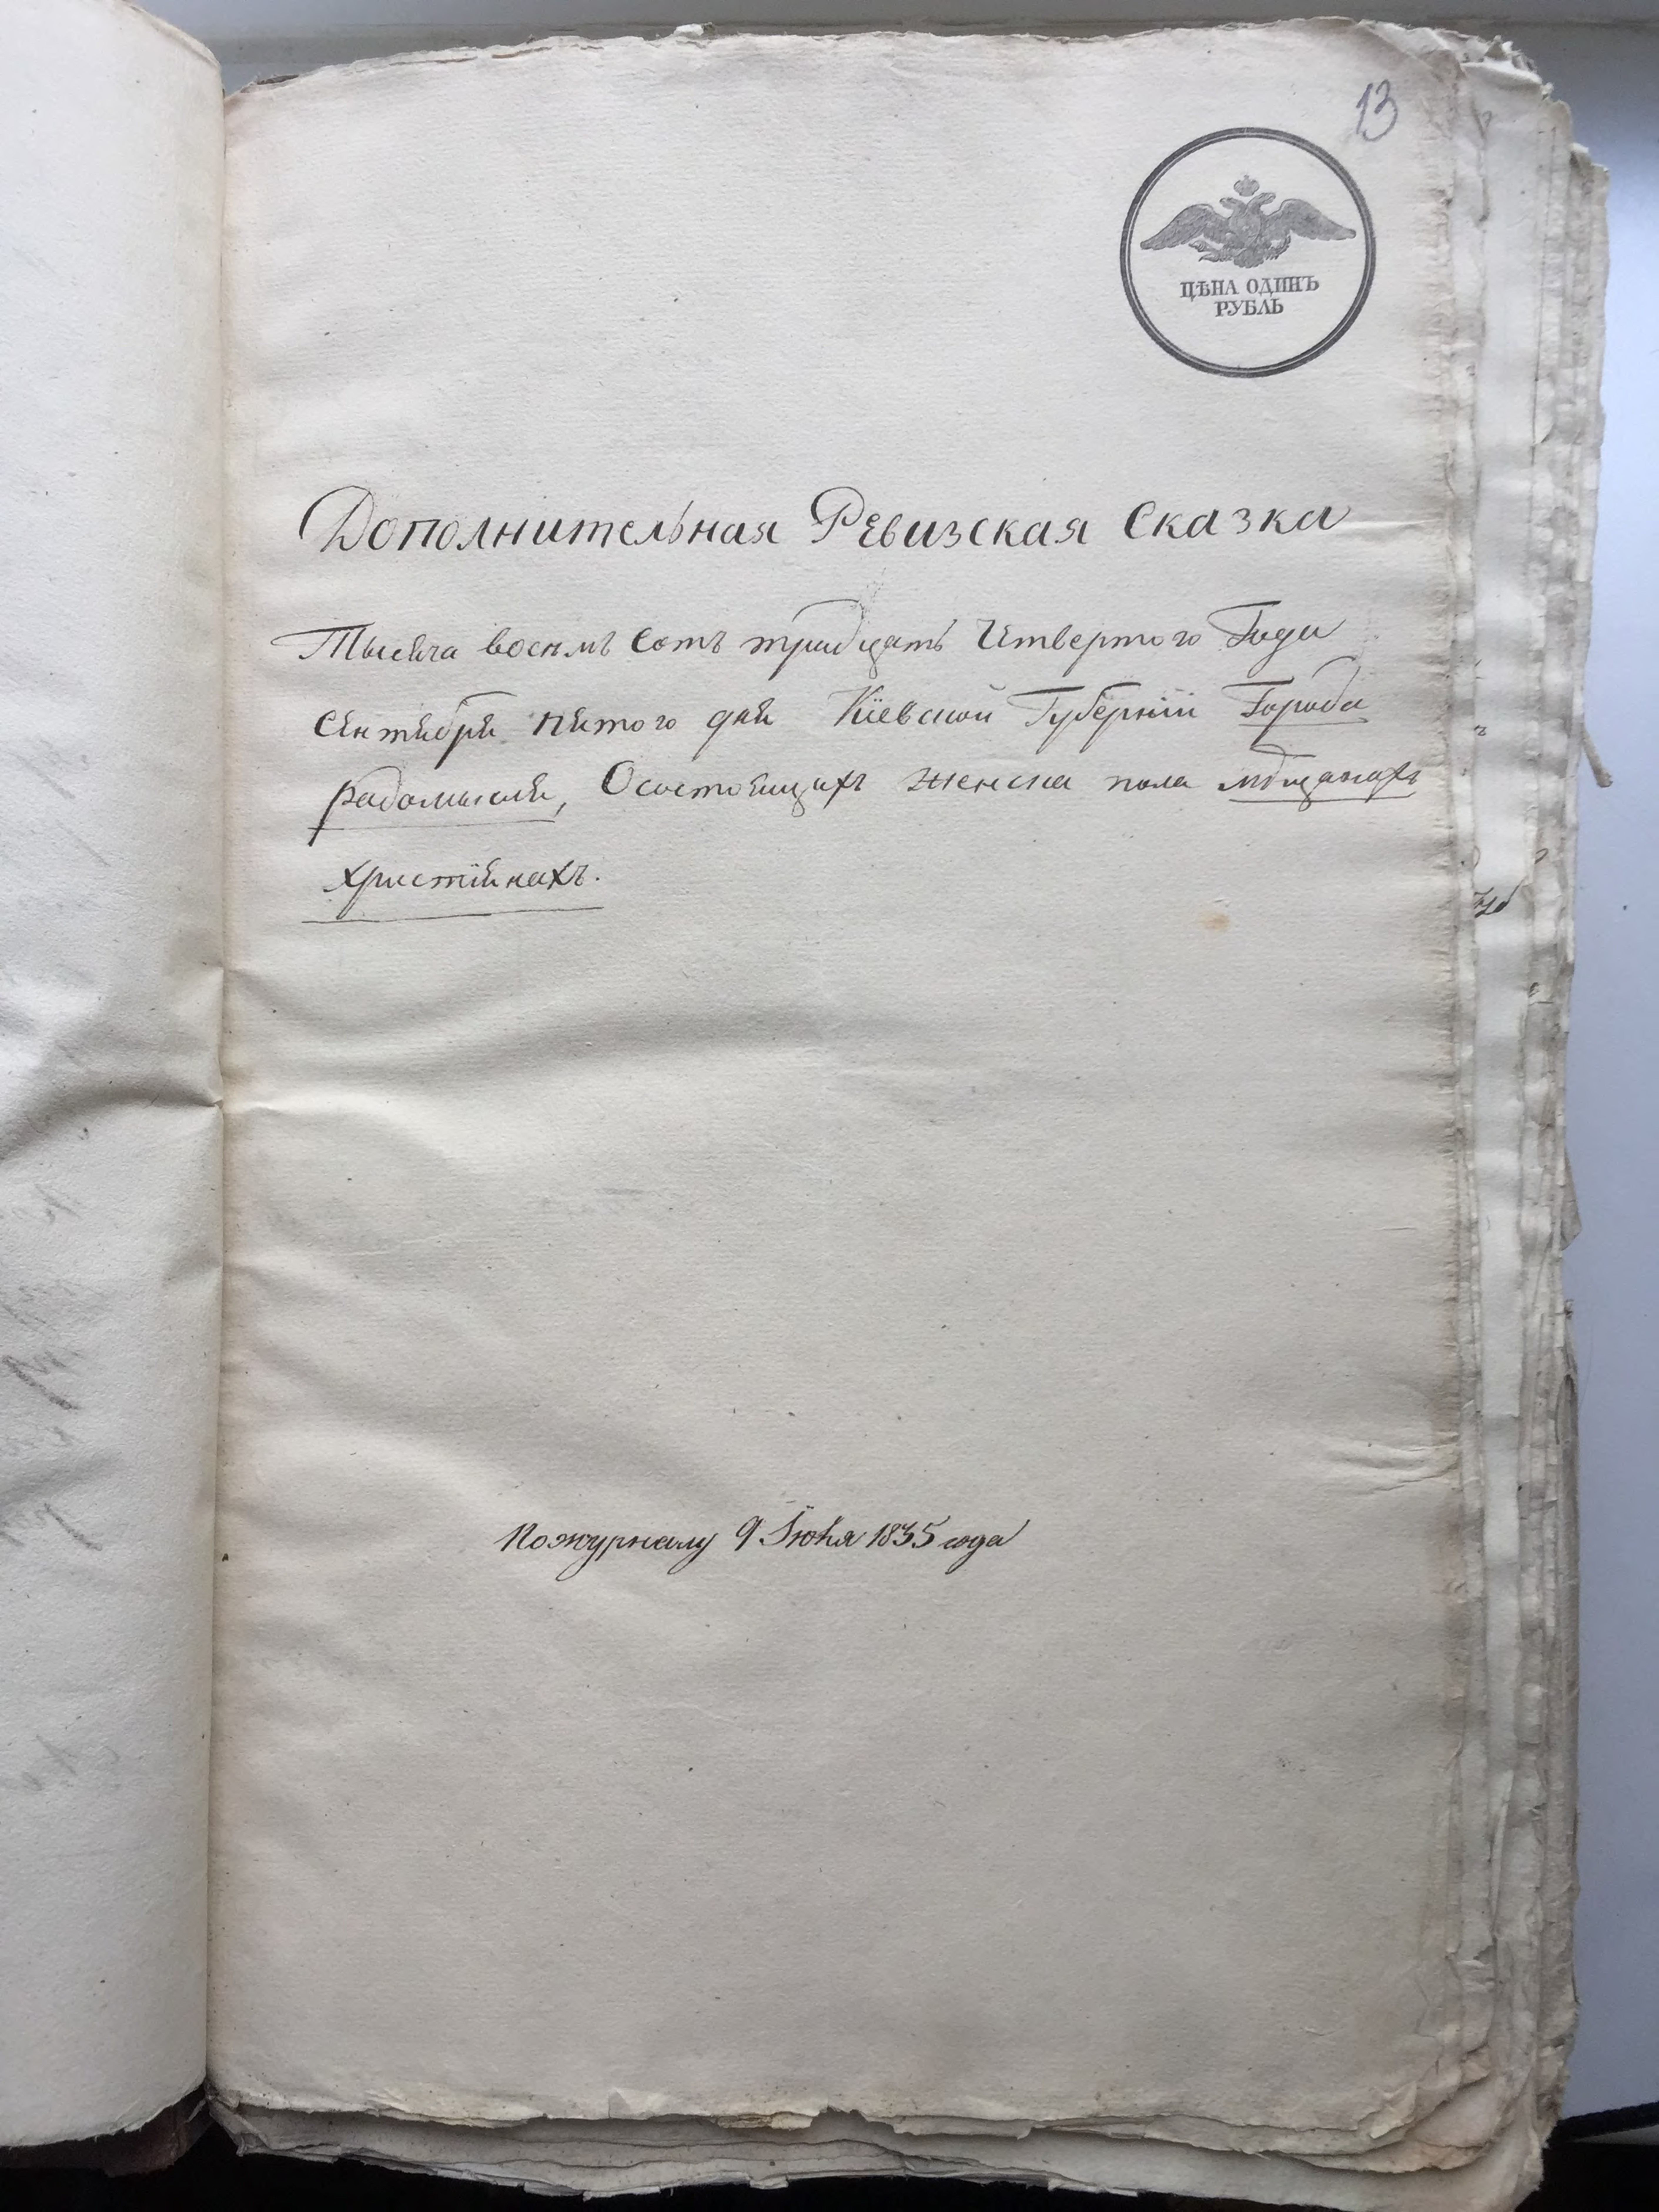 13
ЦѢНА ОДИНЪ
РУБЛЬ
Дополнительная Ревизская Сказка
Тысяча восемь Сотъ тридцать Четвертого Года
Сентября пятого дня Кіевской Губерніи Города
Радомысля, О состоящихъ женска пола мѣщанахъ
христіянахъ.
По журналу 9 Іюня 1835 года